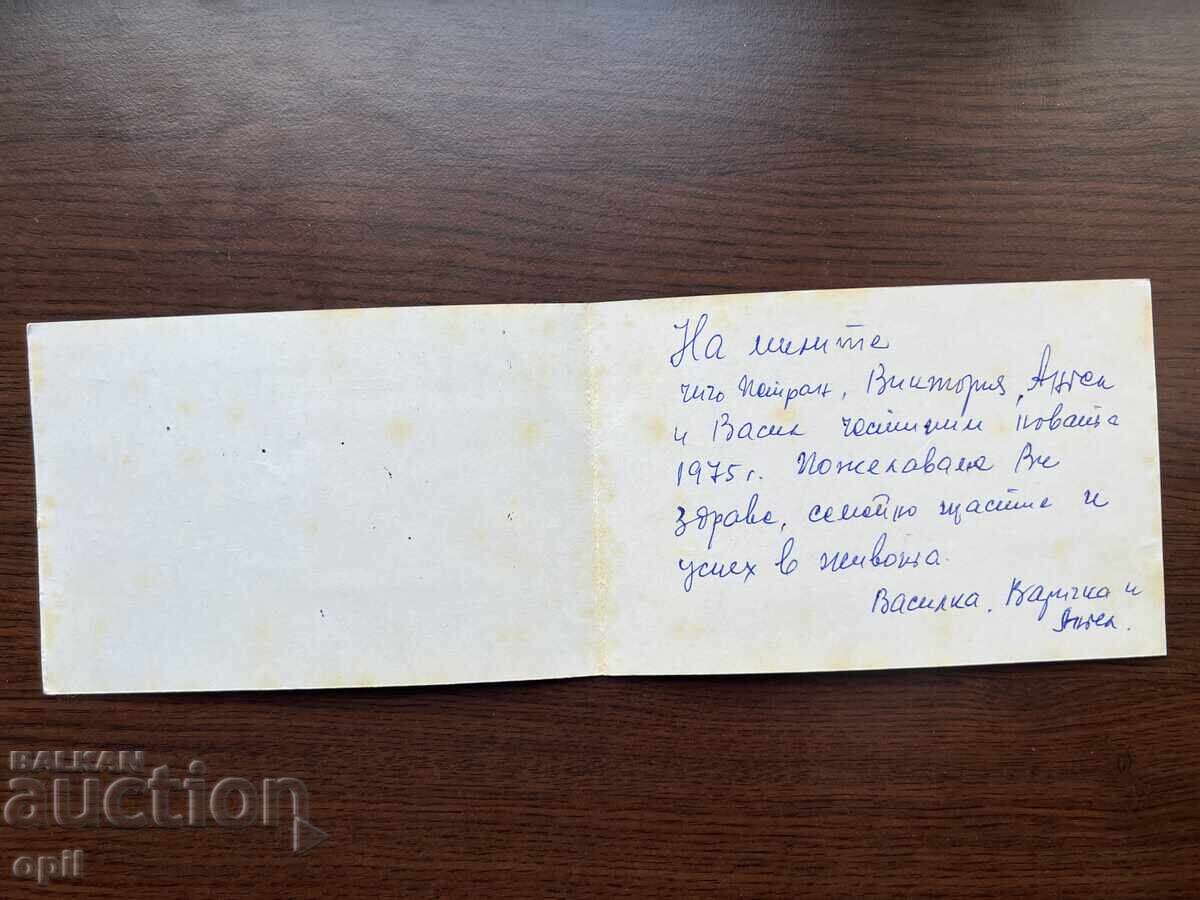 На милите
чичо Петран, Виктория, Ангел
и Васил честитим новата
1975 г. Пожелаваме Ви
здраве, семейно щастие и
успех в живота.
Василка,
Ангел.
BALKAN
auction
opil